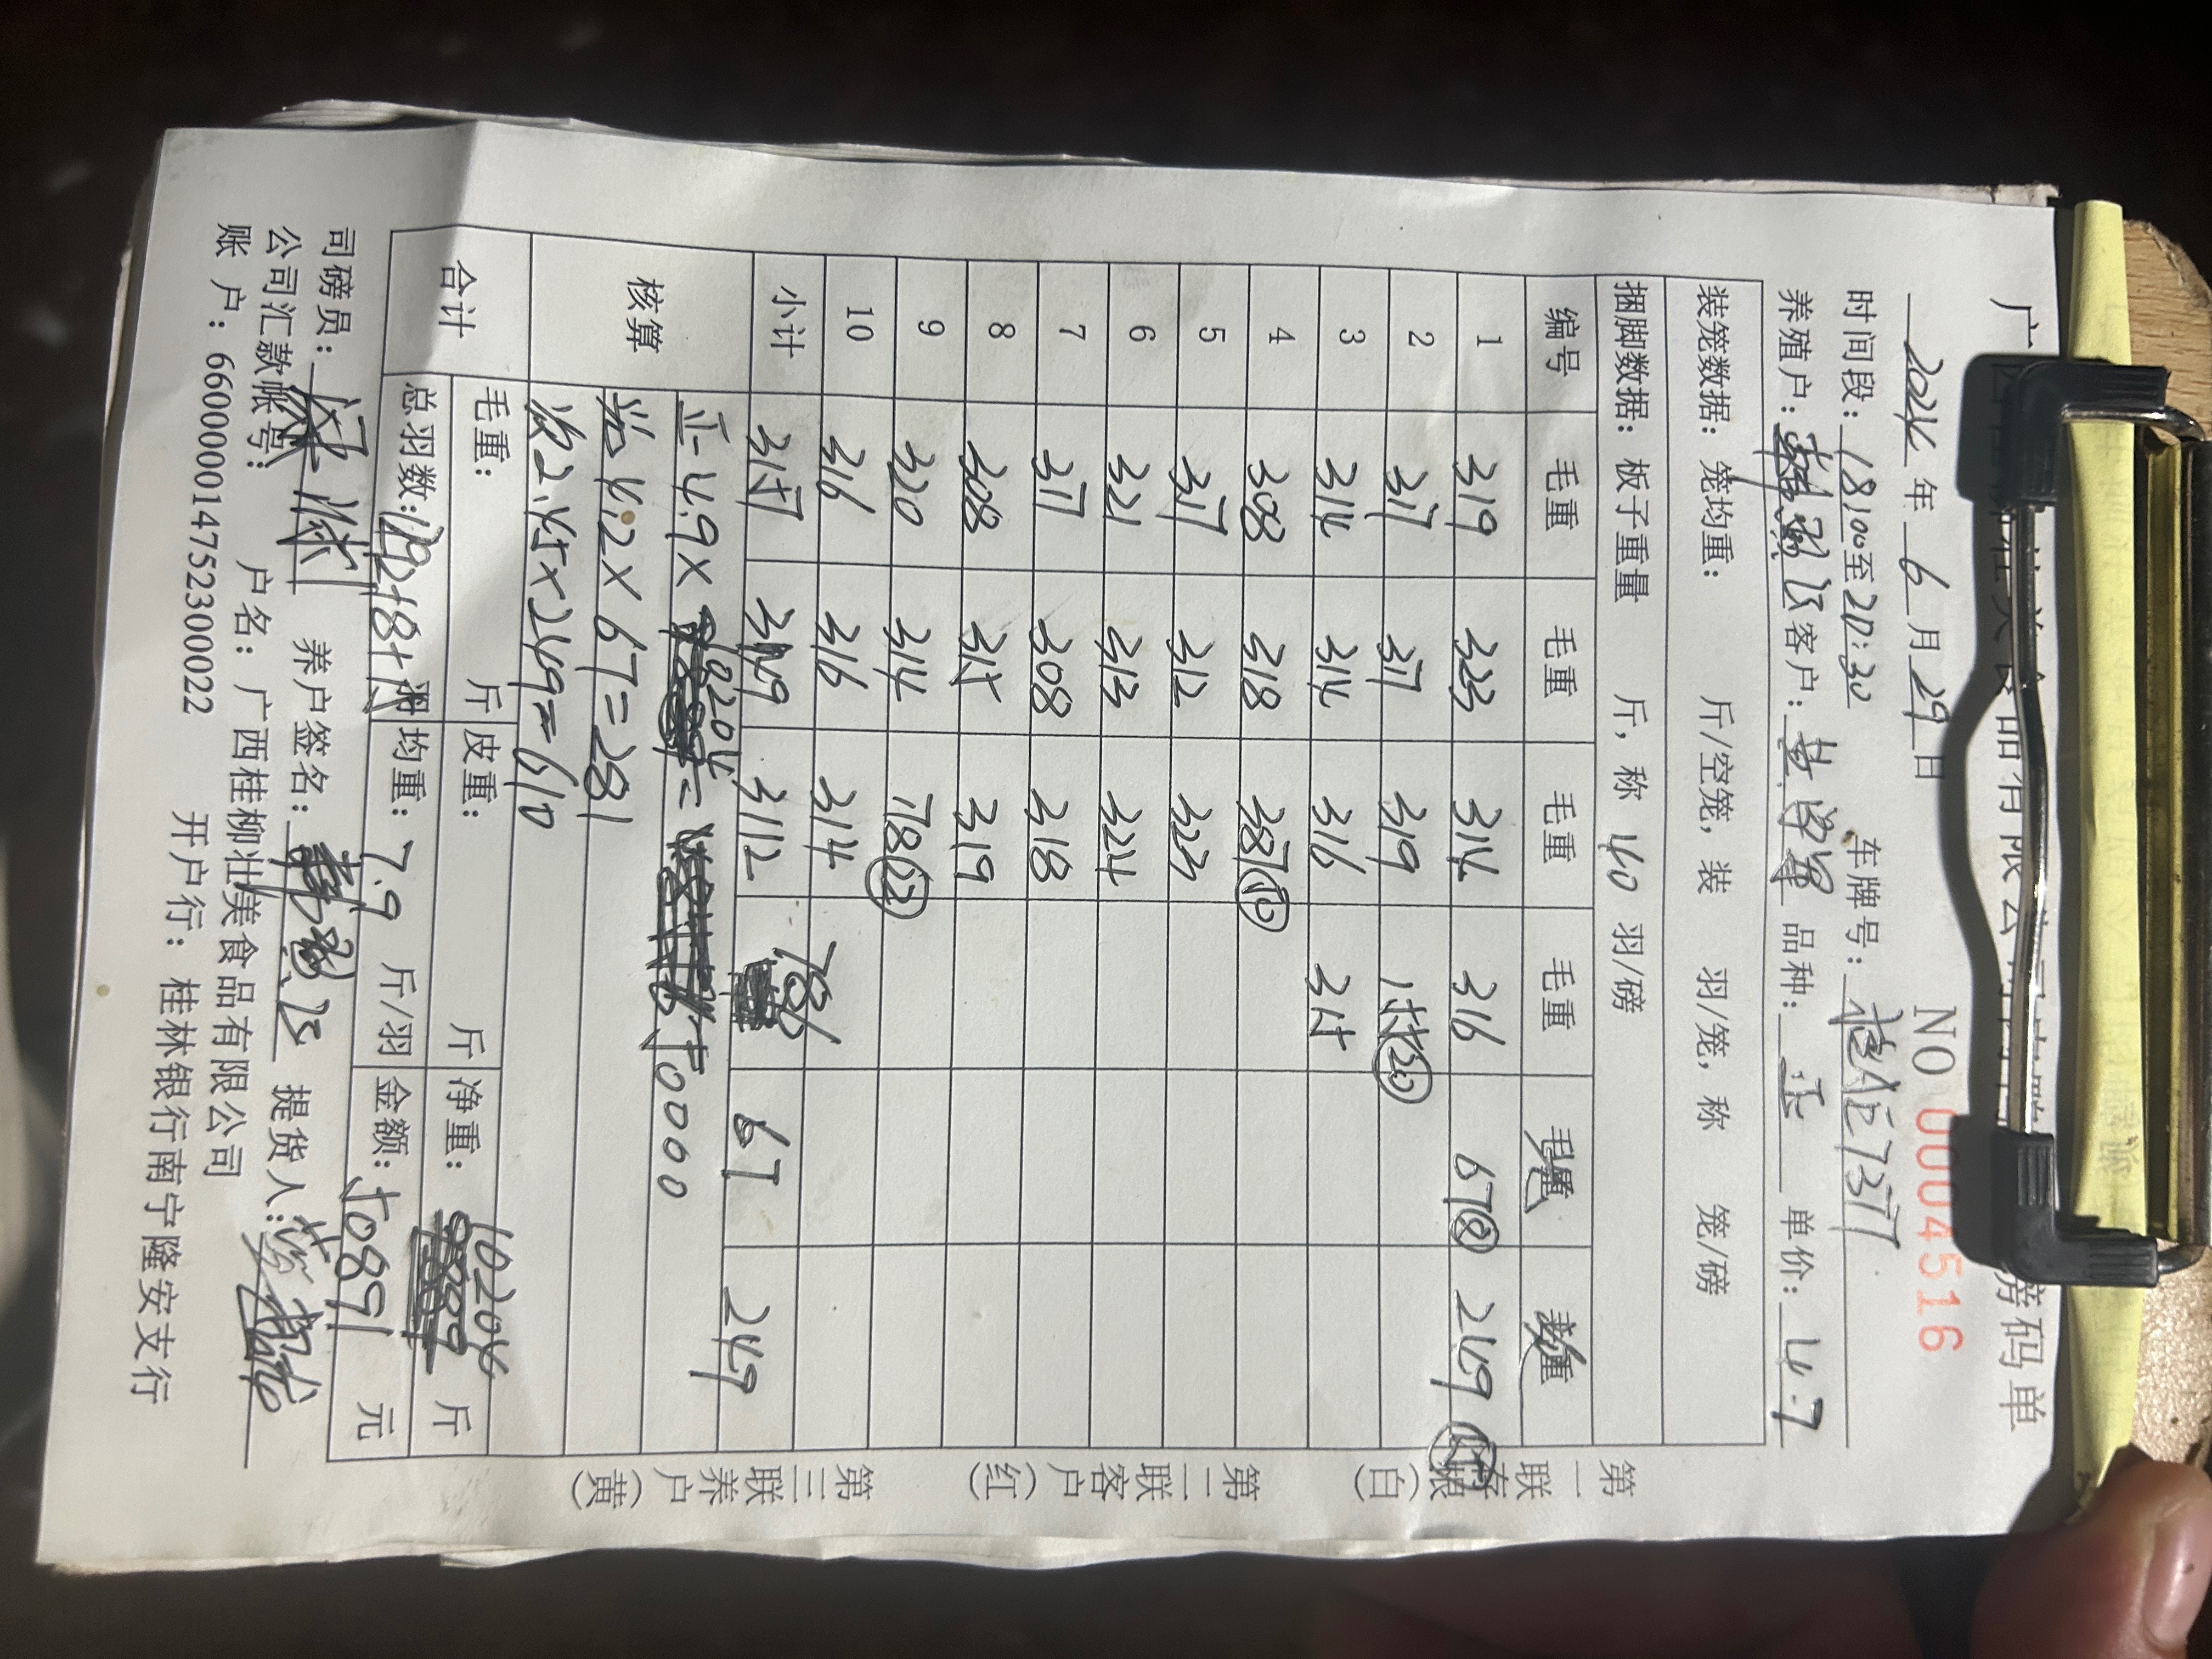 磅码单
NO 0004516
2024年6月29日
时间段:18:00至20:30 车牌号:
养殖户: 客户: 品种:正 单价:4.7
装笼数据:笼均重: 斤/空笼,装 羽/笼,称 笼/磅
捆脚数据:板子重量 斤,称40羽/磅
编号 毛重 毛重 毛重 毛重
1 319 323 314 316 67⑧ 249
2 317 317 319 155⑳
3 314 314 316 315
4 308 318 387
5 317 312 323
6 321 313 324
7 317 308 318
8 308 315 319
9 320 314 178
10 316 316 314
小计 3157 3149 3112 786 67 249
核算 正4.9×10204=50000
4.2×67=281
次2.45×249=610
合计 毛重: 斤 皮重: 斤 净重:10204斤
总羽数: 羽 均重:7.9斤/羽 金额:50891元
司磅员: 养户签名: 提货人:
公司汇款帐号: 户名:广西桂柳壮美食品有限公司
账户:660000014752300022 开户行:桂林银行南宁隆安支行
第一联存根(白)
第二联客户(红)
第三联养户(黄)